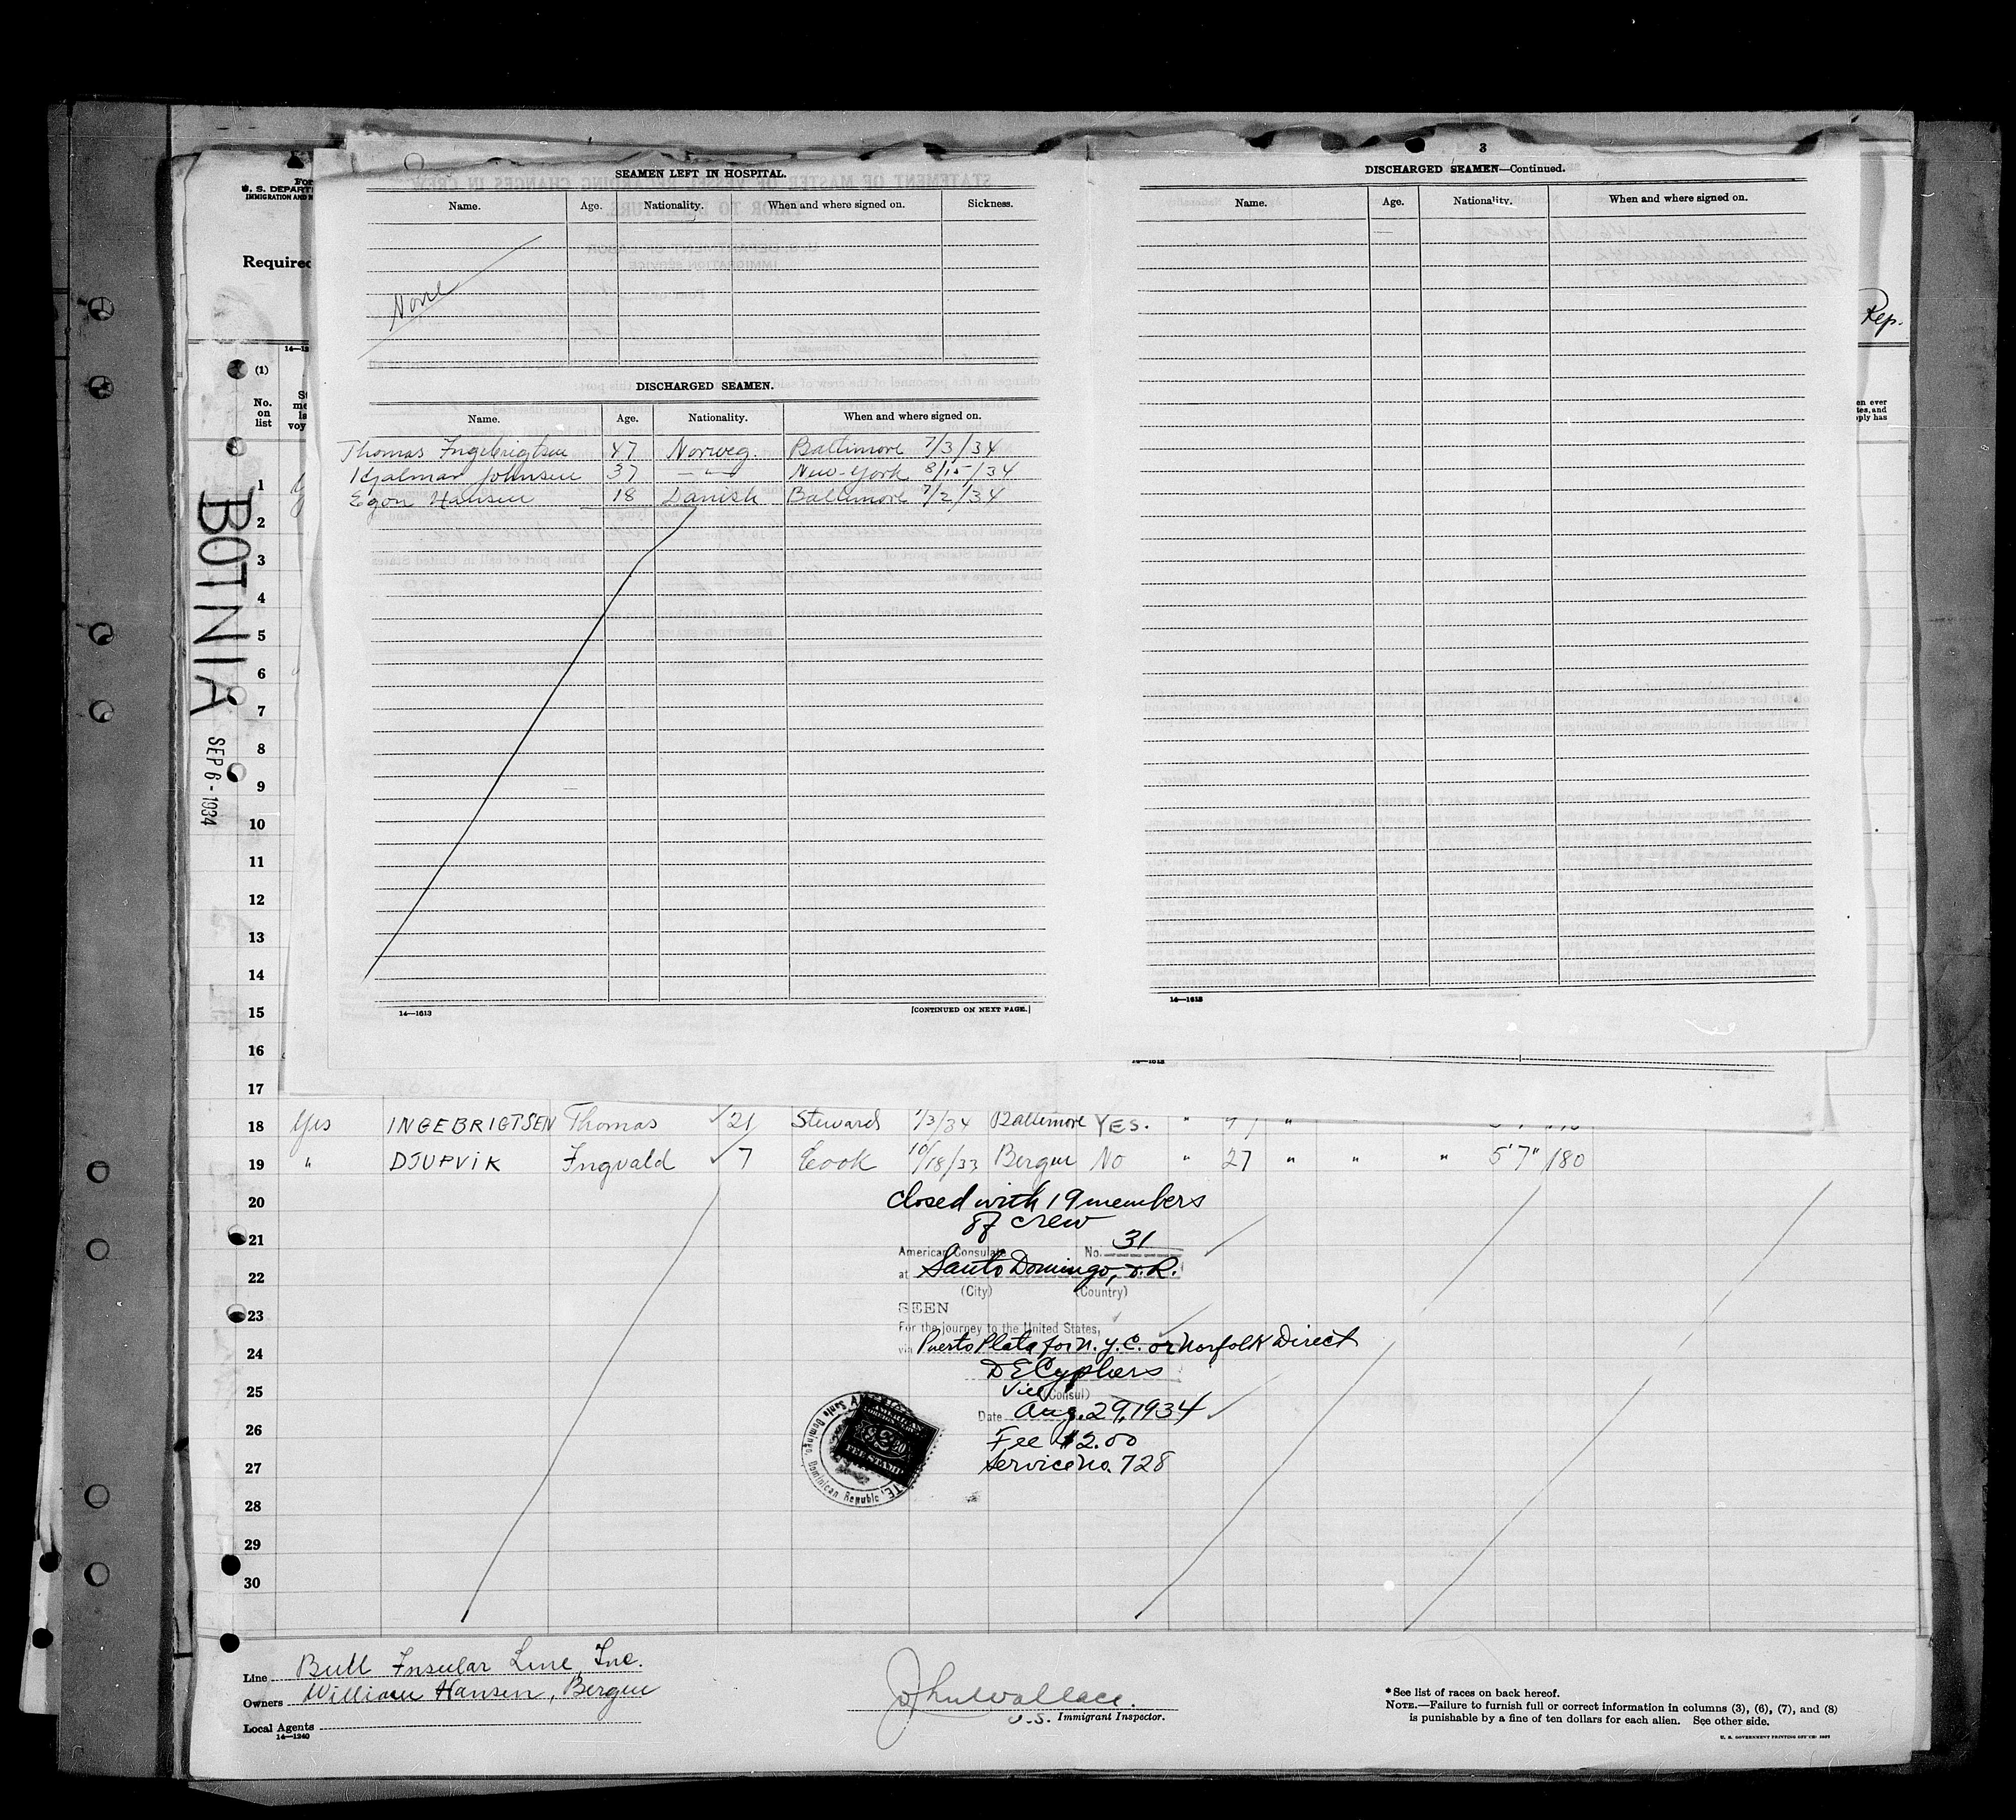 3
SEAMEN LEFT IN HOSPITAL.
Name. Age. Nationality. When and where signed on. Sickness.
None
DISCHARGED SEAMEN.
Name. Age. Nationality. When and where signed on.
Thomas Ingebrigtsen 47 Norweg. Baltimore 7/3/34
Hjalmar Johnsen 37 — " — New-York 8/15/34
Egon Hansen 18 Danish Baltimore 7/2/34
14—1613 [CONTINUED ON NEXT PAGE.]
DISCHARGED SEAMEN—Continued.
Name. Age. Nationality. When and where signed on.
14—1613
U. S. DEPART
IMMIGRATION AND N
Required
Rep.
(1)
No.
on
list
BOTNIA
SEP 6 - 1934
1
2
3
4
5
6
7
8
9
10
11
12
13
14
15
16
17
18 Yes INGEBRIGTSEN Thomas 21 Steward 7/3/34 Baltimore YES. " 47 "
19 " DJUPVIK Ingvald 7 Cook 10/18/33 Bergen No " 27 " " " 5'7" 180
20
21
22
23
24
25
26
27
28
29
30
Closed with 19 members
of crew
American Consulate No. 31
at Santo Domingo, D.R.
(City) (Country)
SEEN
For the journey to the United States,
via Puerto Plata for N.Y.C. or Norfolk Direct
D E Cyphers
Vice (Consul)
Date Aug. 29, 1934
Fee $2.00
Service No. 728
AMERICAN
FEE STAMP
Santo Domingo, Dominican Republic
Line Bull Insular Line, Inc.
Owners William Hansen, Bergen
Local Agents
14—1240
John Wallace.
U.S. Immigrant Inspector.
*See list of races on back hereof.
NOTE.—Failure to furnish full or correct information in columns (3), (6), (7), and (8)
is punishable by a fine of ten dollars for each alien. See other side.
U. S. GOVERNMENT PRINTING OFFICE: 1927